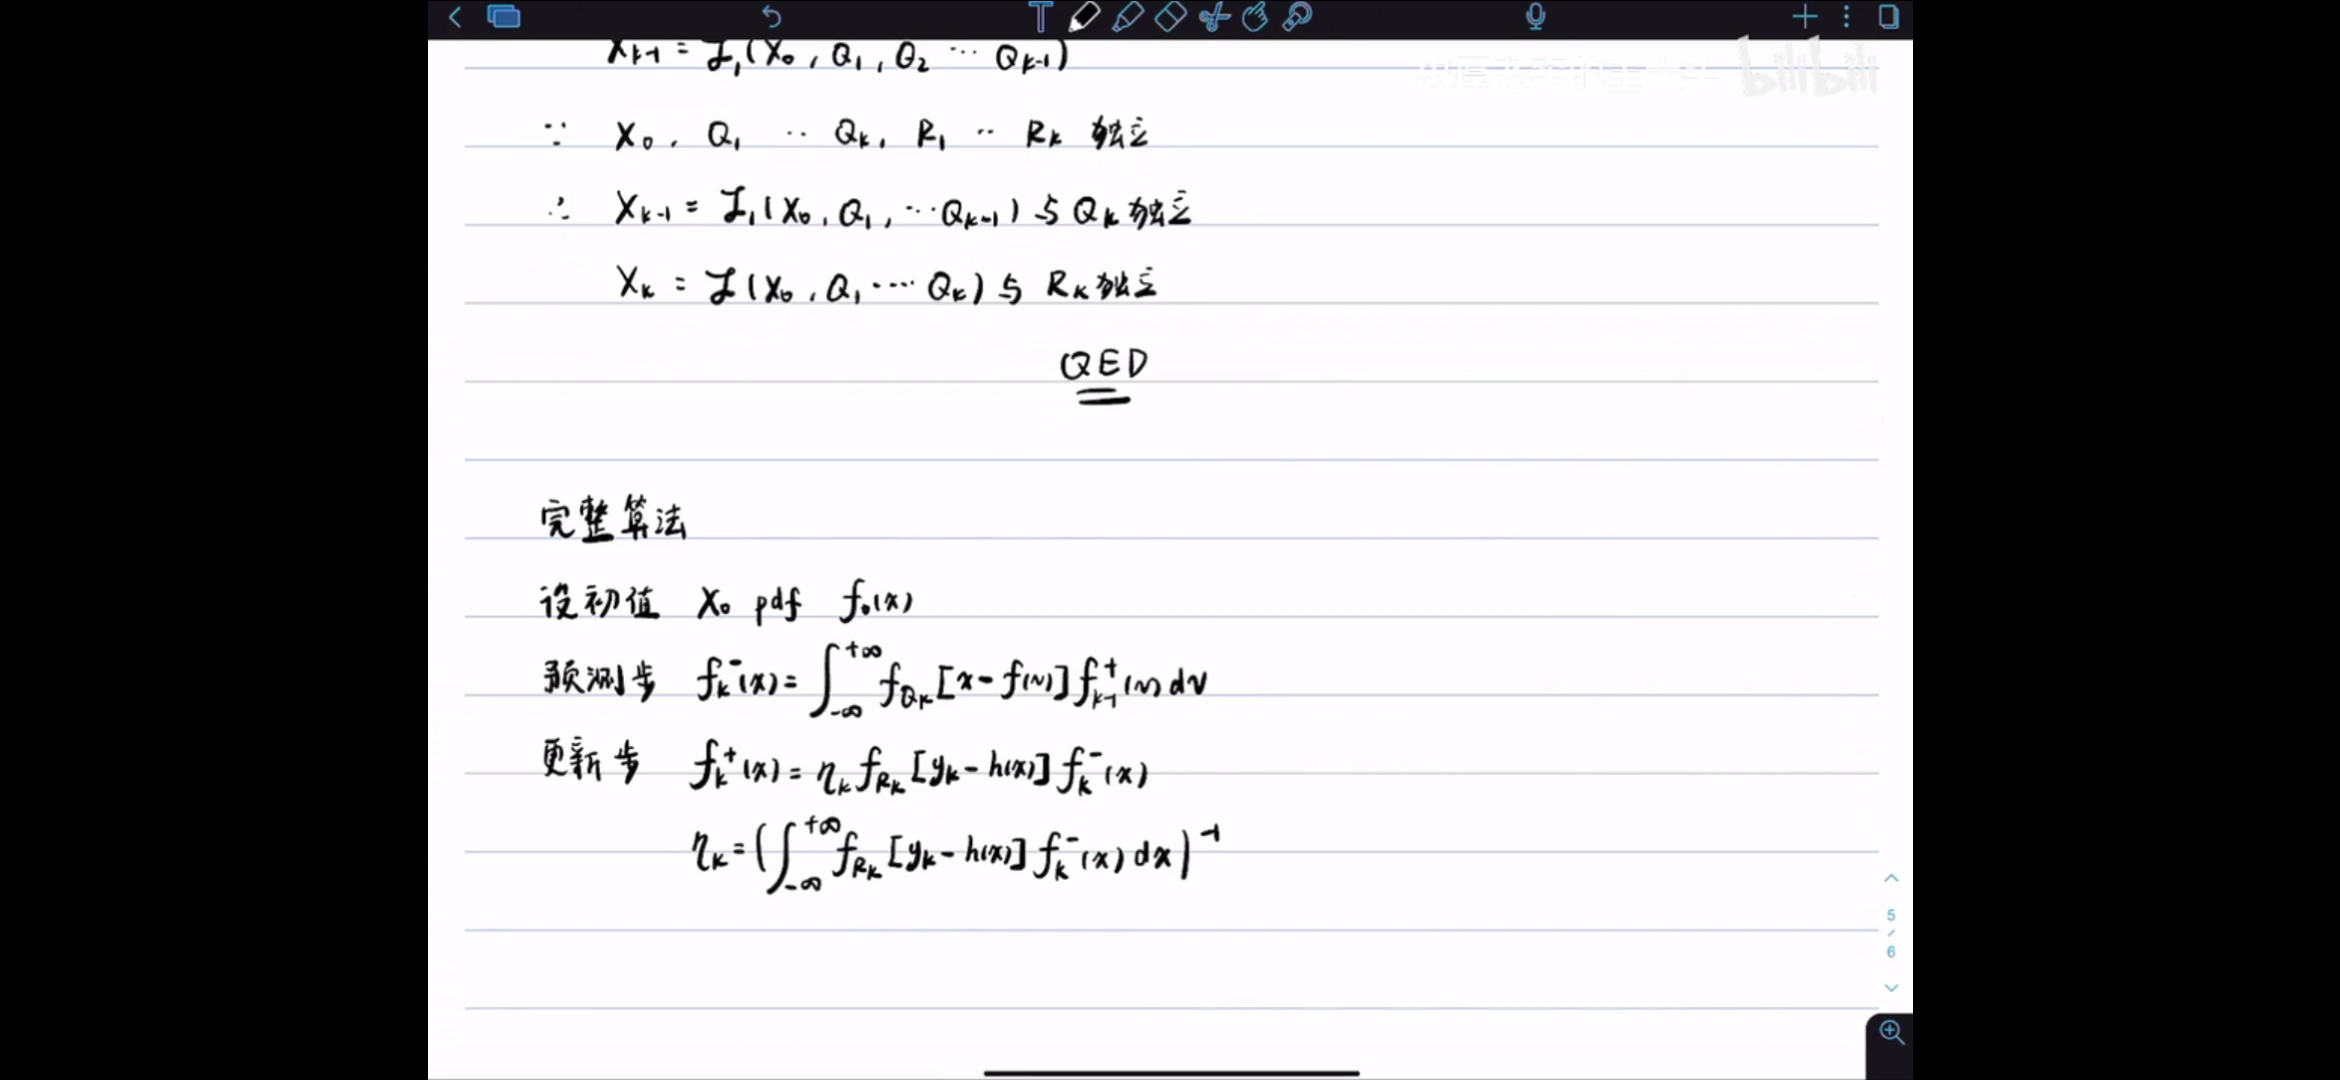 X_{k-1} = F_1(X_0, Q_1, Q_2 ··· Q_{k-1})
bilibili
∵ X_0, Q_1 ·· Q_k, R_1 ·· R_k 独立
∴ X_{k-1} = F_1(X_0, Q_1, ··· Q_{k-1}) 与 Q_k 独立
X_k = F(X_0, Q_1 ···· Q_k) 与 R_k 独立
QED
完整算法
设初值 X_0 pdf f_0(x)
预测步 f_k^-(x) = ∫_{-∞}^{+∞} f_{Q_k}[x - f(v)] f_{k-1}^+(v) dv
更新步 f_k^+(x) = η_k f_{R_k}[y_k - h(x)] f_k^-(x)
η_k = (∫_{-∞}^{+∞} f_{R_k}[y_k - h(x)] f_k^-(x) dx)^{-1}
5
/
6